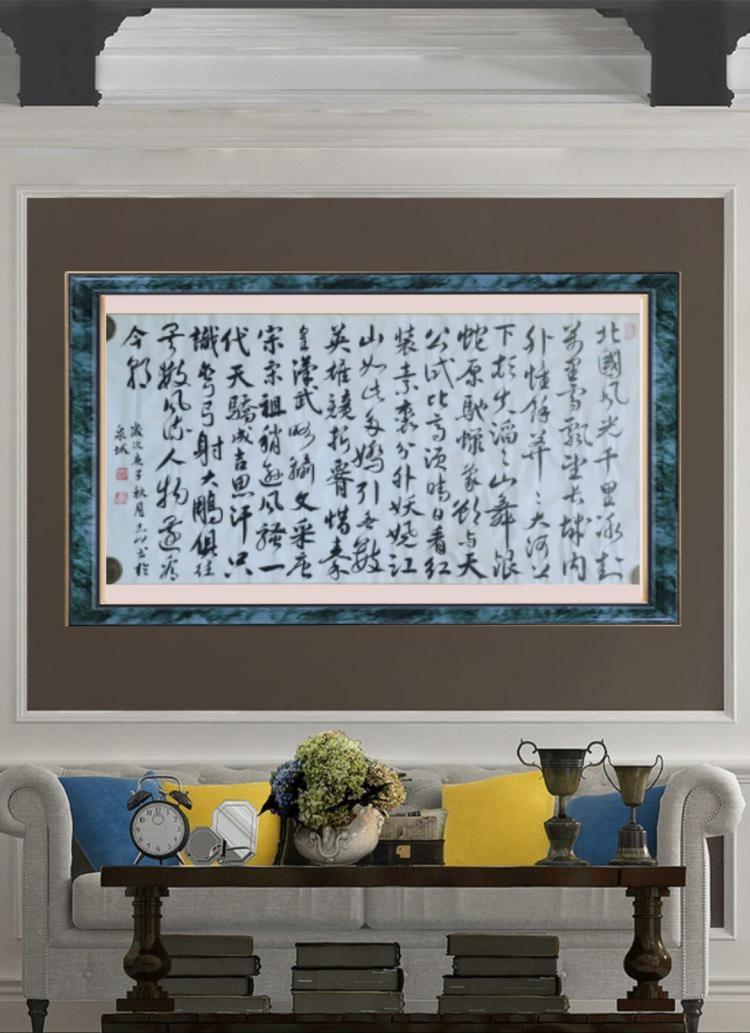 北國风光千里冰封
万里雪飘望长城内
外惟馀莽々大河上
下顿失滔々山舞银
蛇原驰蜡象欲与天
公试比高须晴日看红
装素裹分外妖娆江
山如此多娇引无数
英雄競折腰惜秦
皇漢武略输文采唐
宗宋祖稍逊风骚一
代天驕成吉思汗只
識弯弓射大鵰俱往
矣数风流人物还看
今朝
歲次庚子秋月书於
泉城